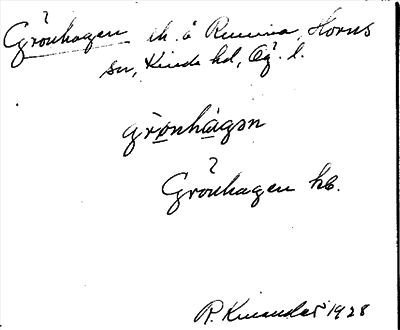 Grönhagen th. å Rumma, Horns
sn, Kinda hd, Ög. l.
grönhagen
?
Grönhagen hb.
R. Kinander 1928